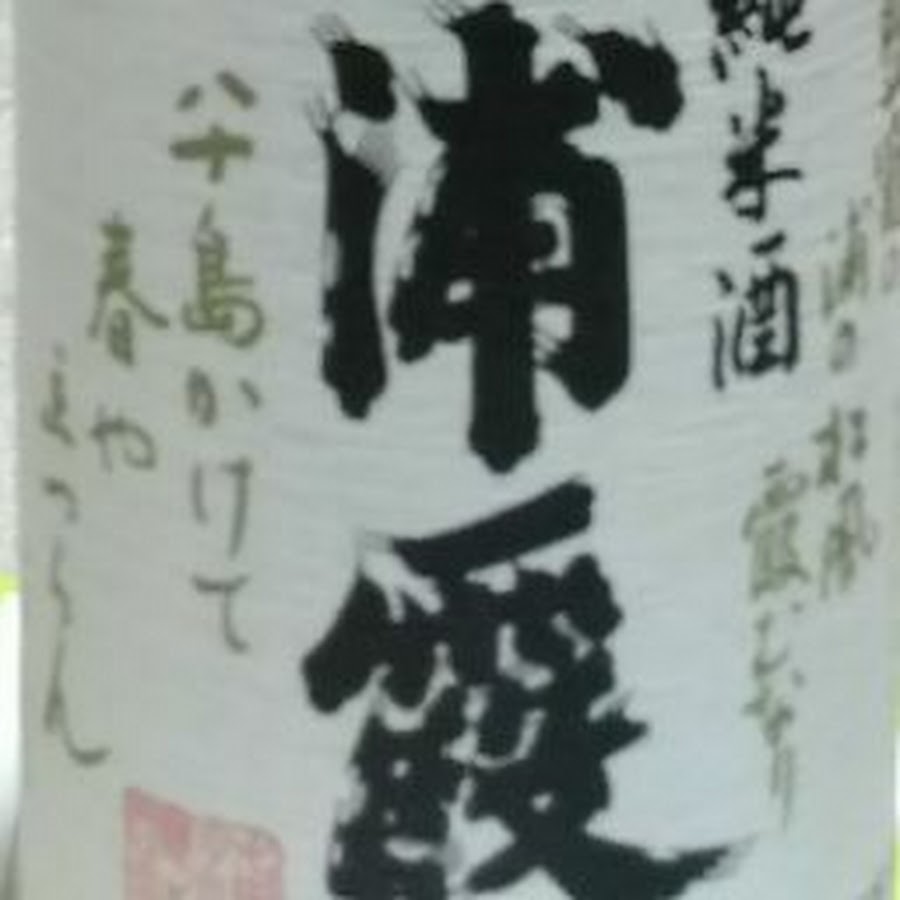 浦の松風
霞むなり
純米酒
浦霞
八十島かけて
春や
たつらん